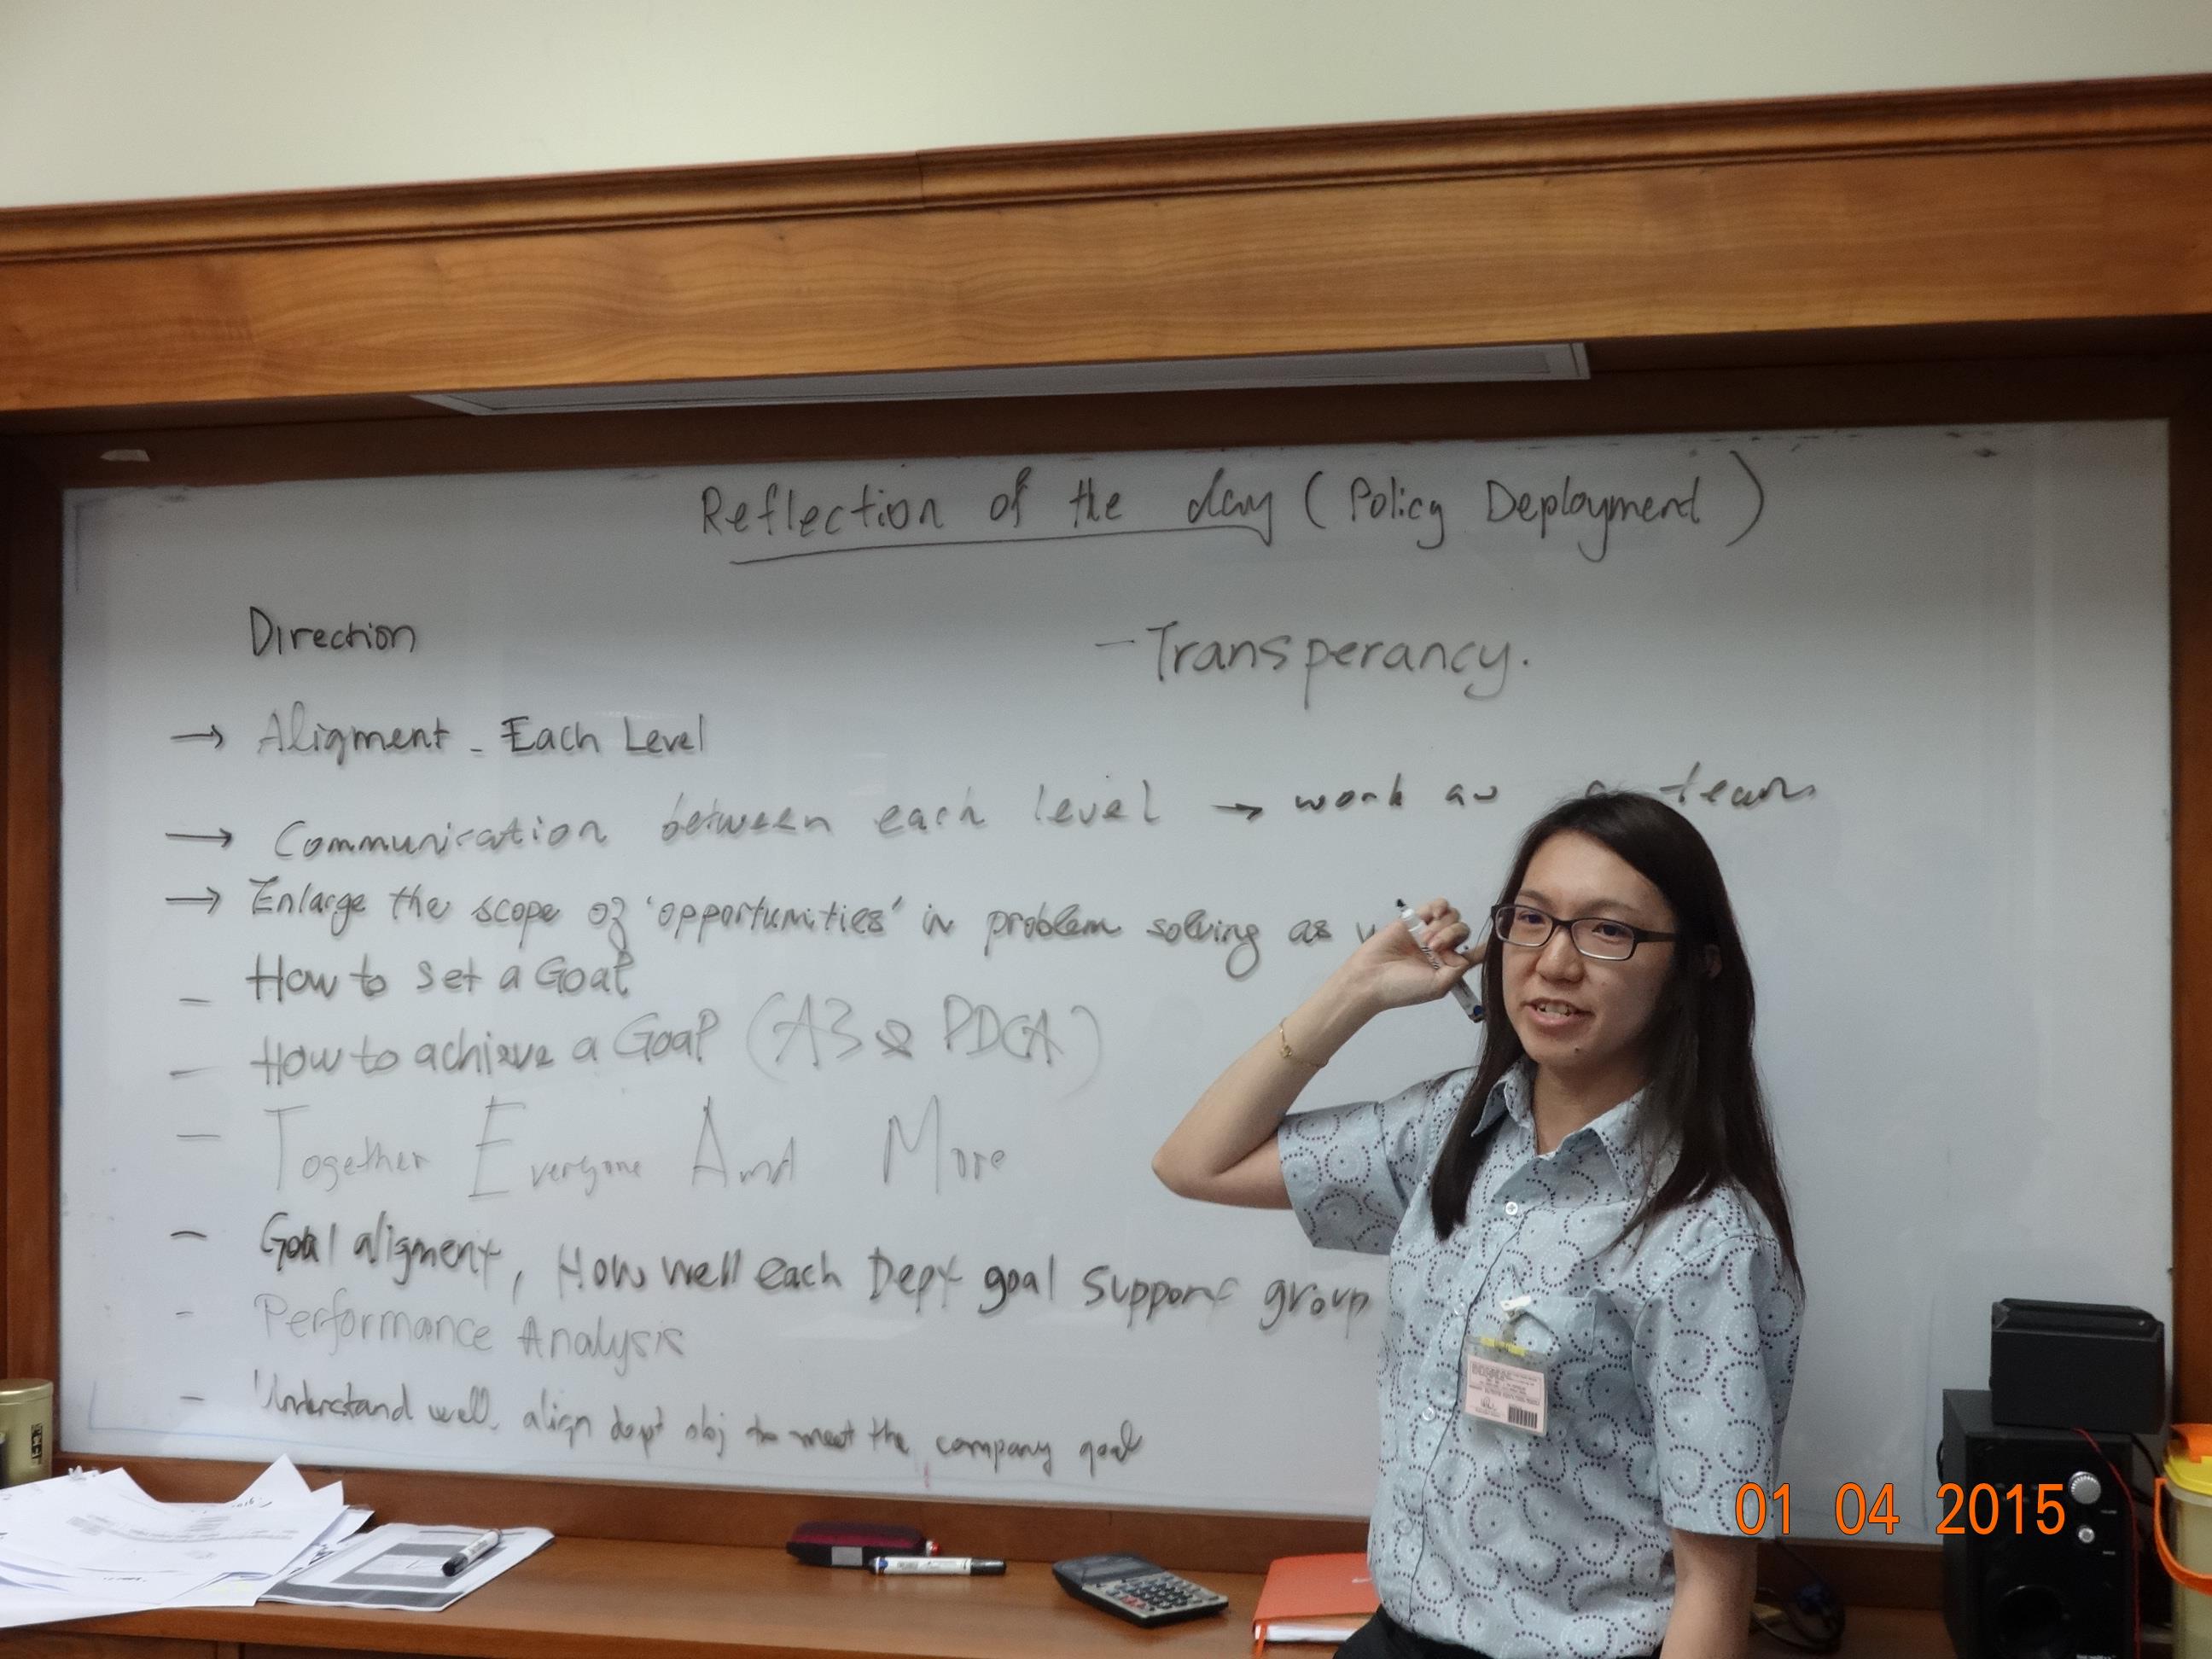 Reflection of the day (Policy Deployment)
Direction
- Transperancy.
→ Aligment - Each Level
→ Communication between each level → work as a team
→ Enlarge the scope of 'opportunities' in problem solving as
- How to set a Goal
- How to achieve a Goal (A3 & PDCA)
- Together Everyone And More
- Goal aligment, How well each Dept goal support group
- Performance Analysis
- Understand well, align dept obj to meet the company goal
01 04 2015